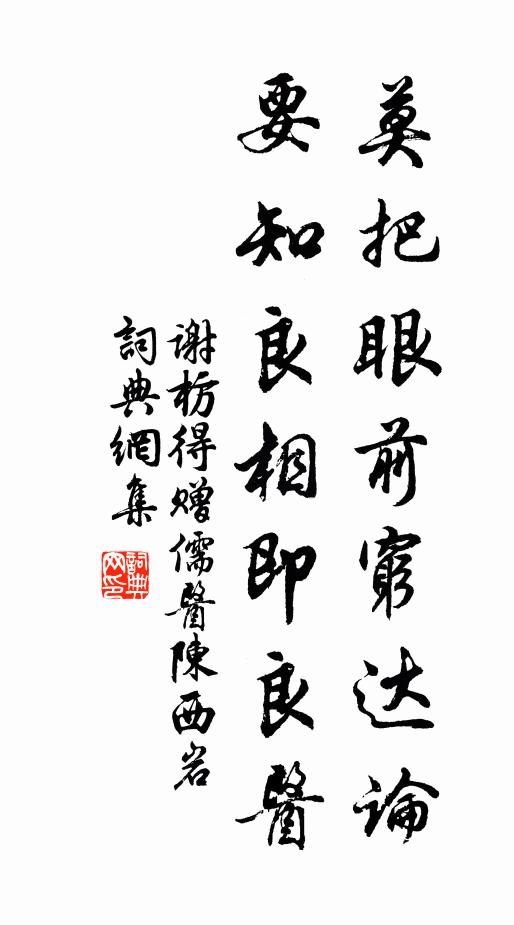 莫把眼前窮达論
要知良相即良醫
謝枋得贈儒醫陳西岩
詞典網集
詞典网印